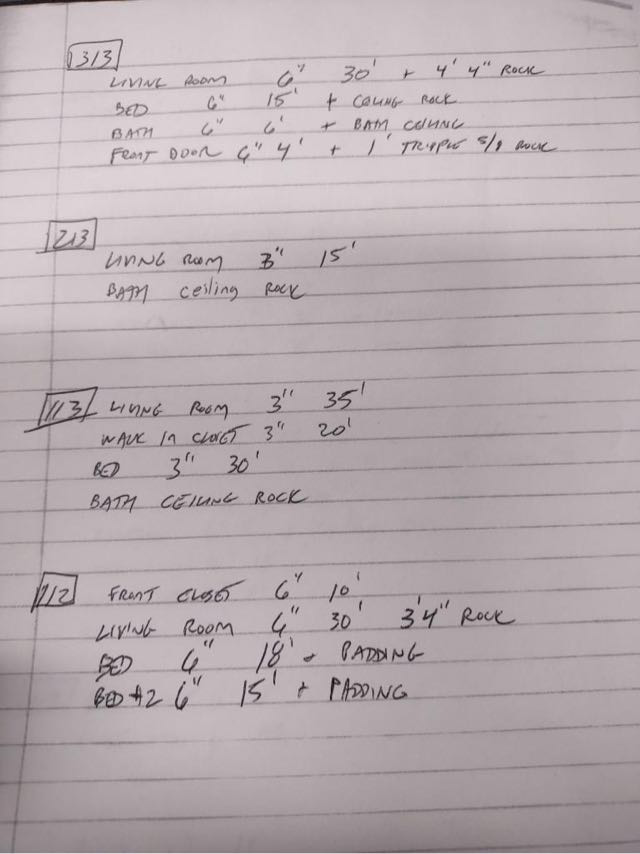 313
LIVING ROOM 6" 30' + 4' 4" ROCK
BED 6" 15' + CEILING ROCK
BATH 6" 6' + BATH CEILING
FRONT DOOR 6" 4' + 1' TRIPPLE 5/8 ROCK
213
LIVING ROOM 3" 15'
BATH ceiling ROCK
113 LIVING ROOM 3" 35'
WALK IN CLOSET 3" 20'
BED 3" 30'
BATH CEILING ROCK
112 FRONT CLOSET 6" 10'
LIVING ROOM 6" 30' 3'4" ROCK
BED 6" 18' + PADDING
BED #2 6" 15' + PADDING